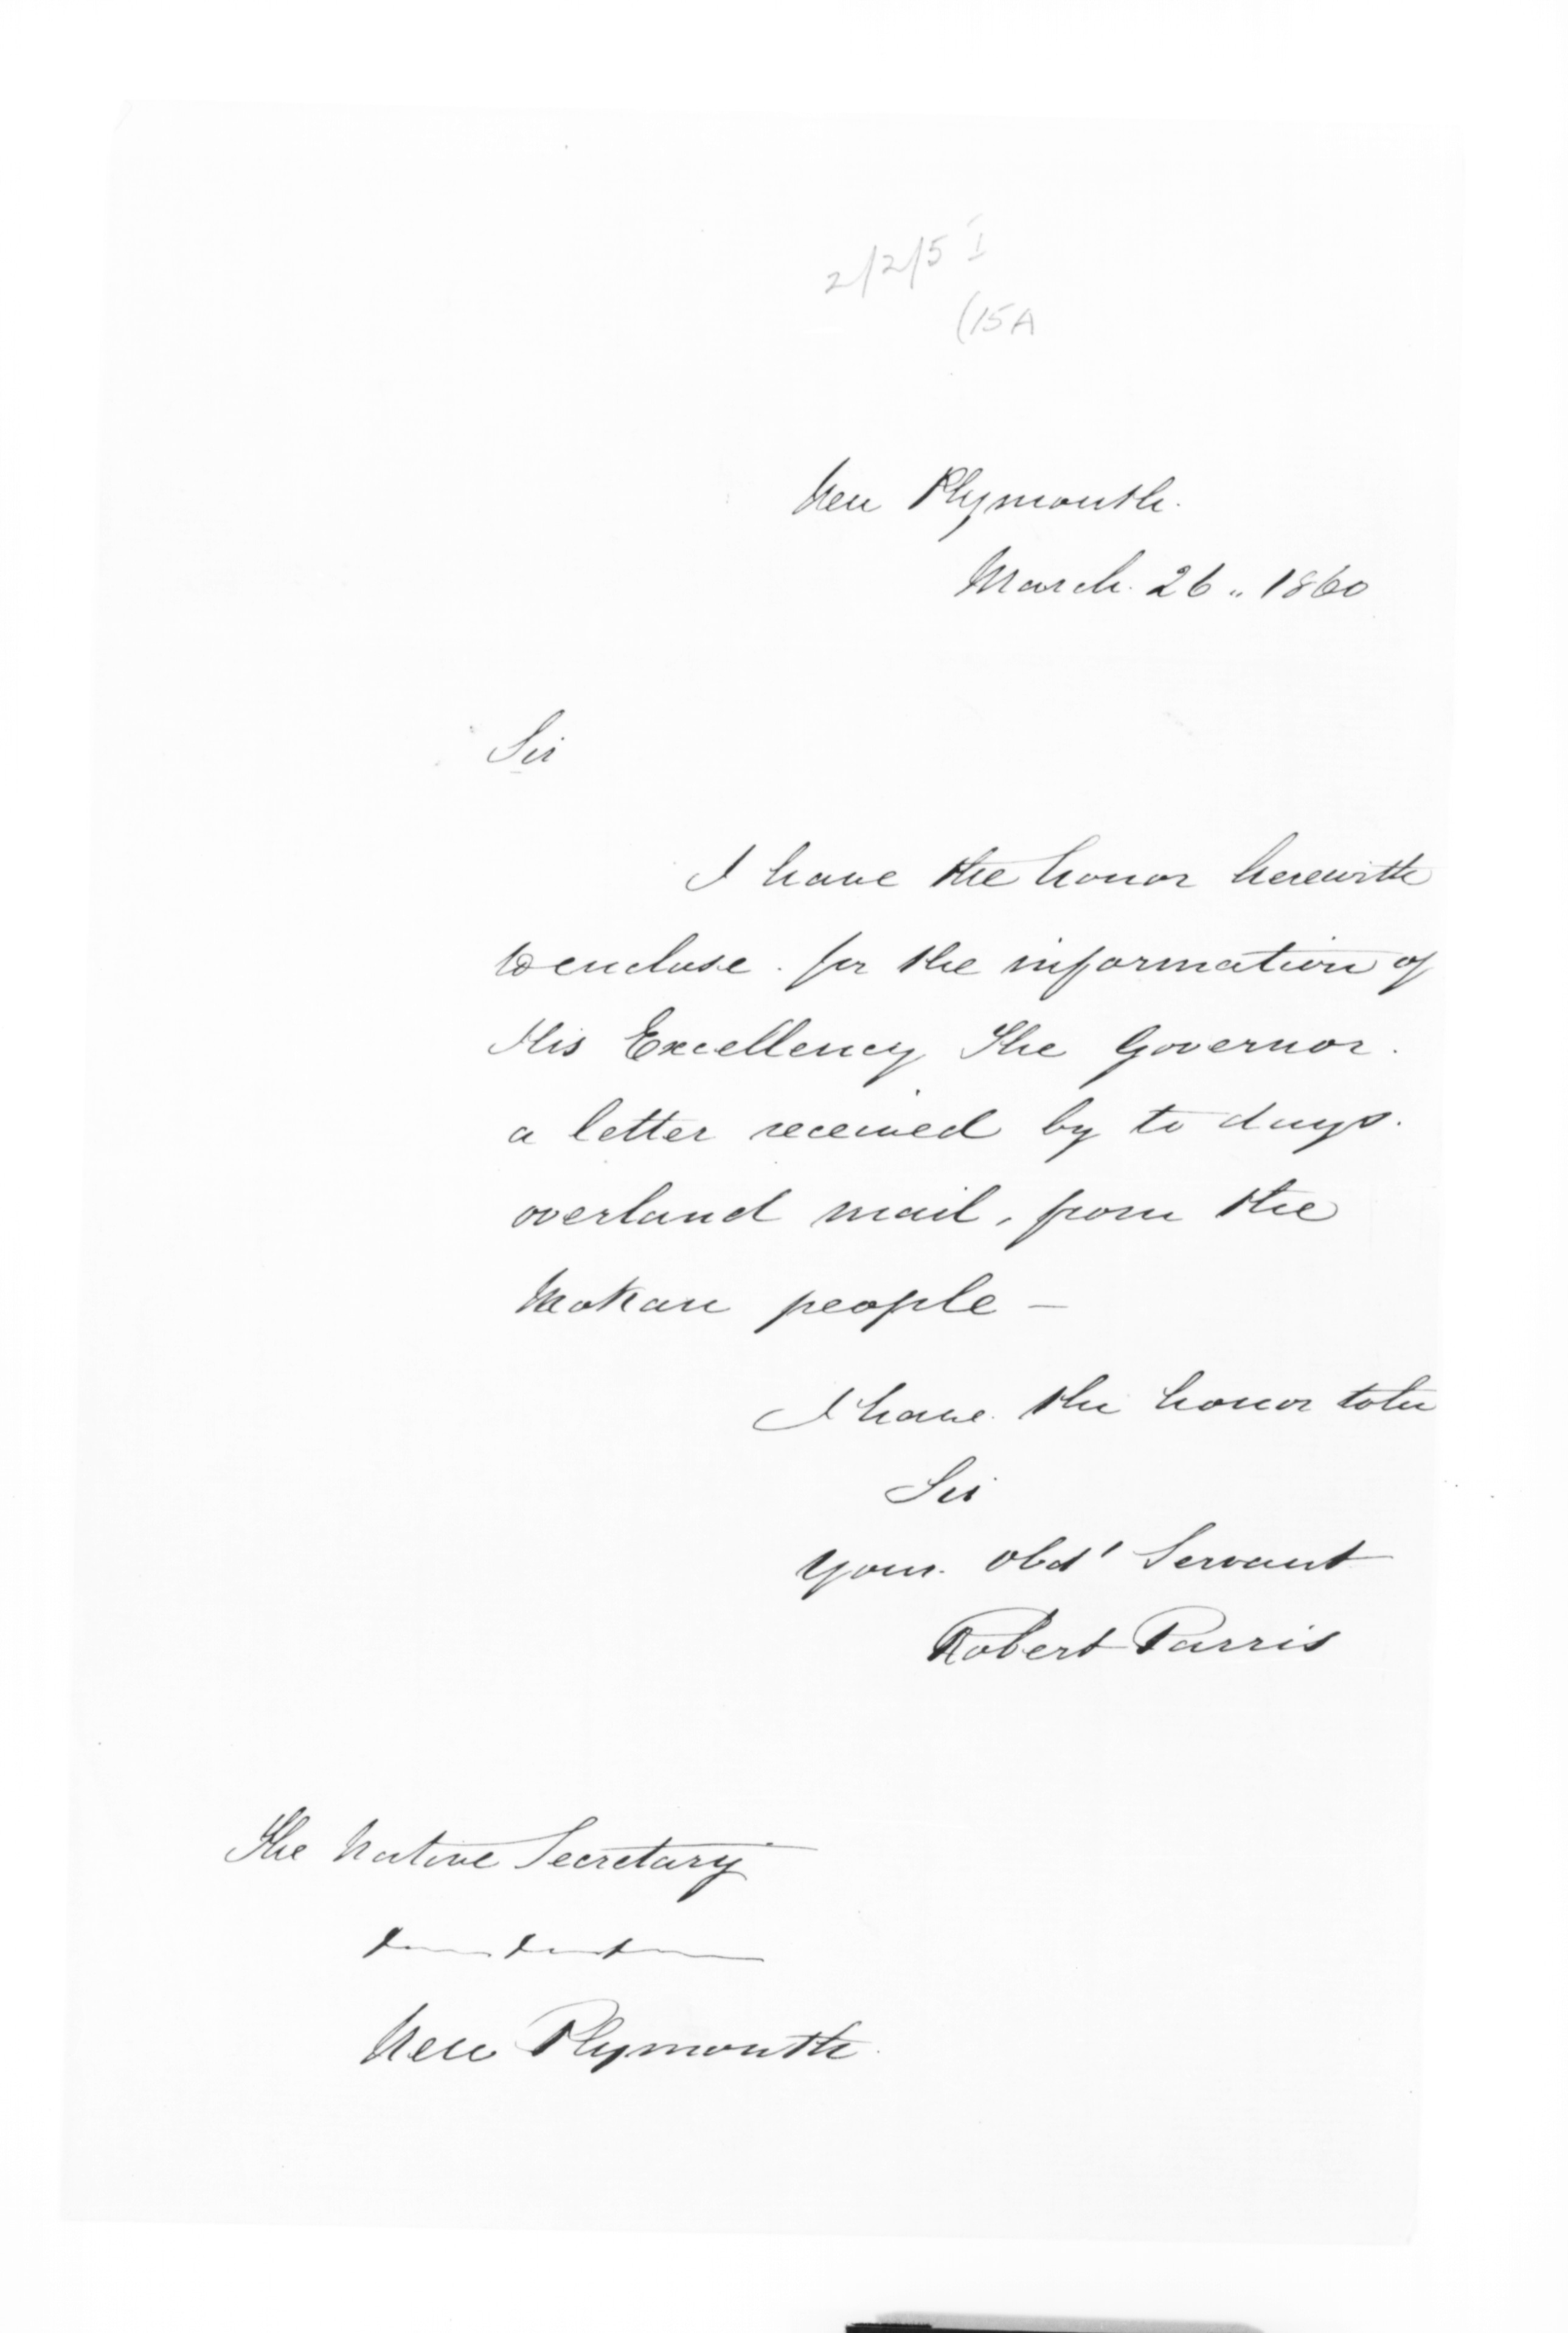 2/2/5 I
(15A
New Plymouth.
March. 26 „ 1860
Sir
I have the honor herewith
to enclose. for the information of
His Excellency The Governor.
a letter received by to days.
overland mail, from the
Mokau people —
I have. the honor to be
Sir
Your. Obdt Servant
Robert Parris
The Native Secretary
New Plymouth.